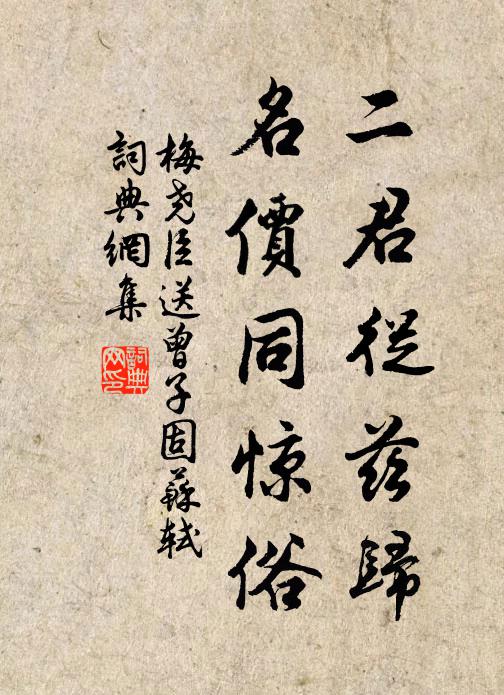 二君從茲歸
名價同惊俗
梅尧臣送曾子固蘇軾
詞典網集
詞典网印